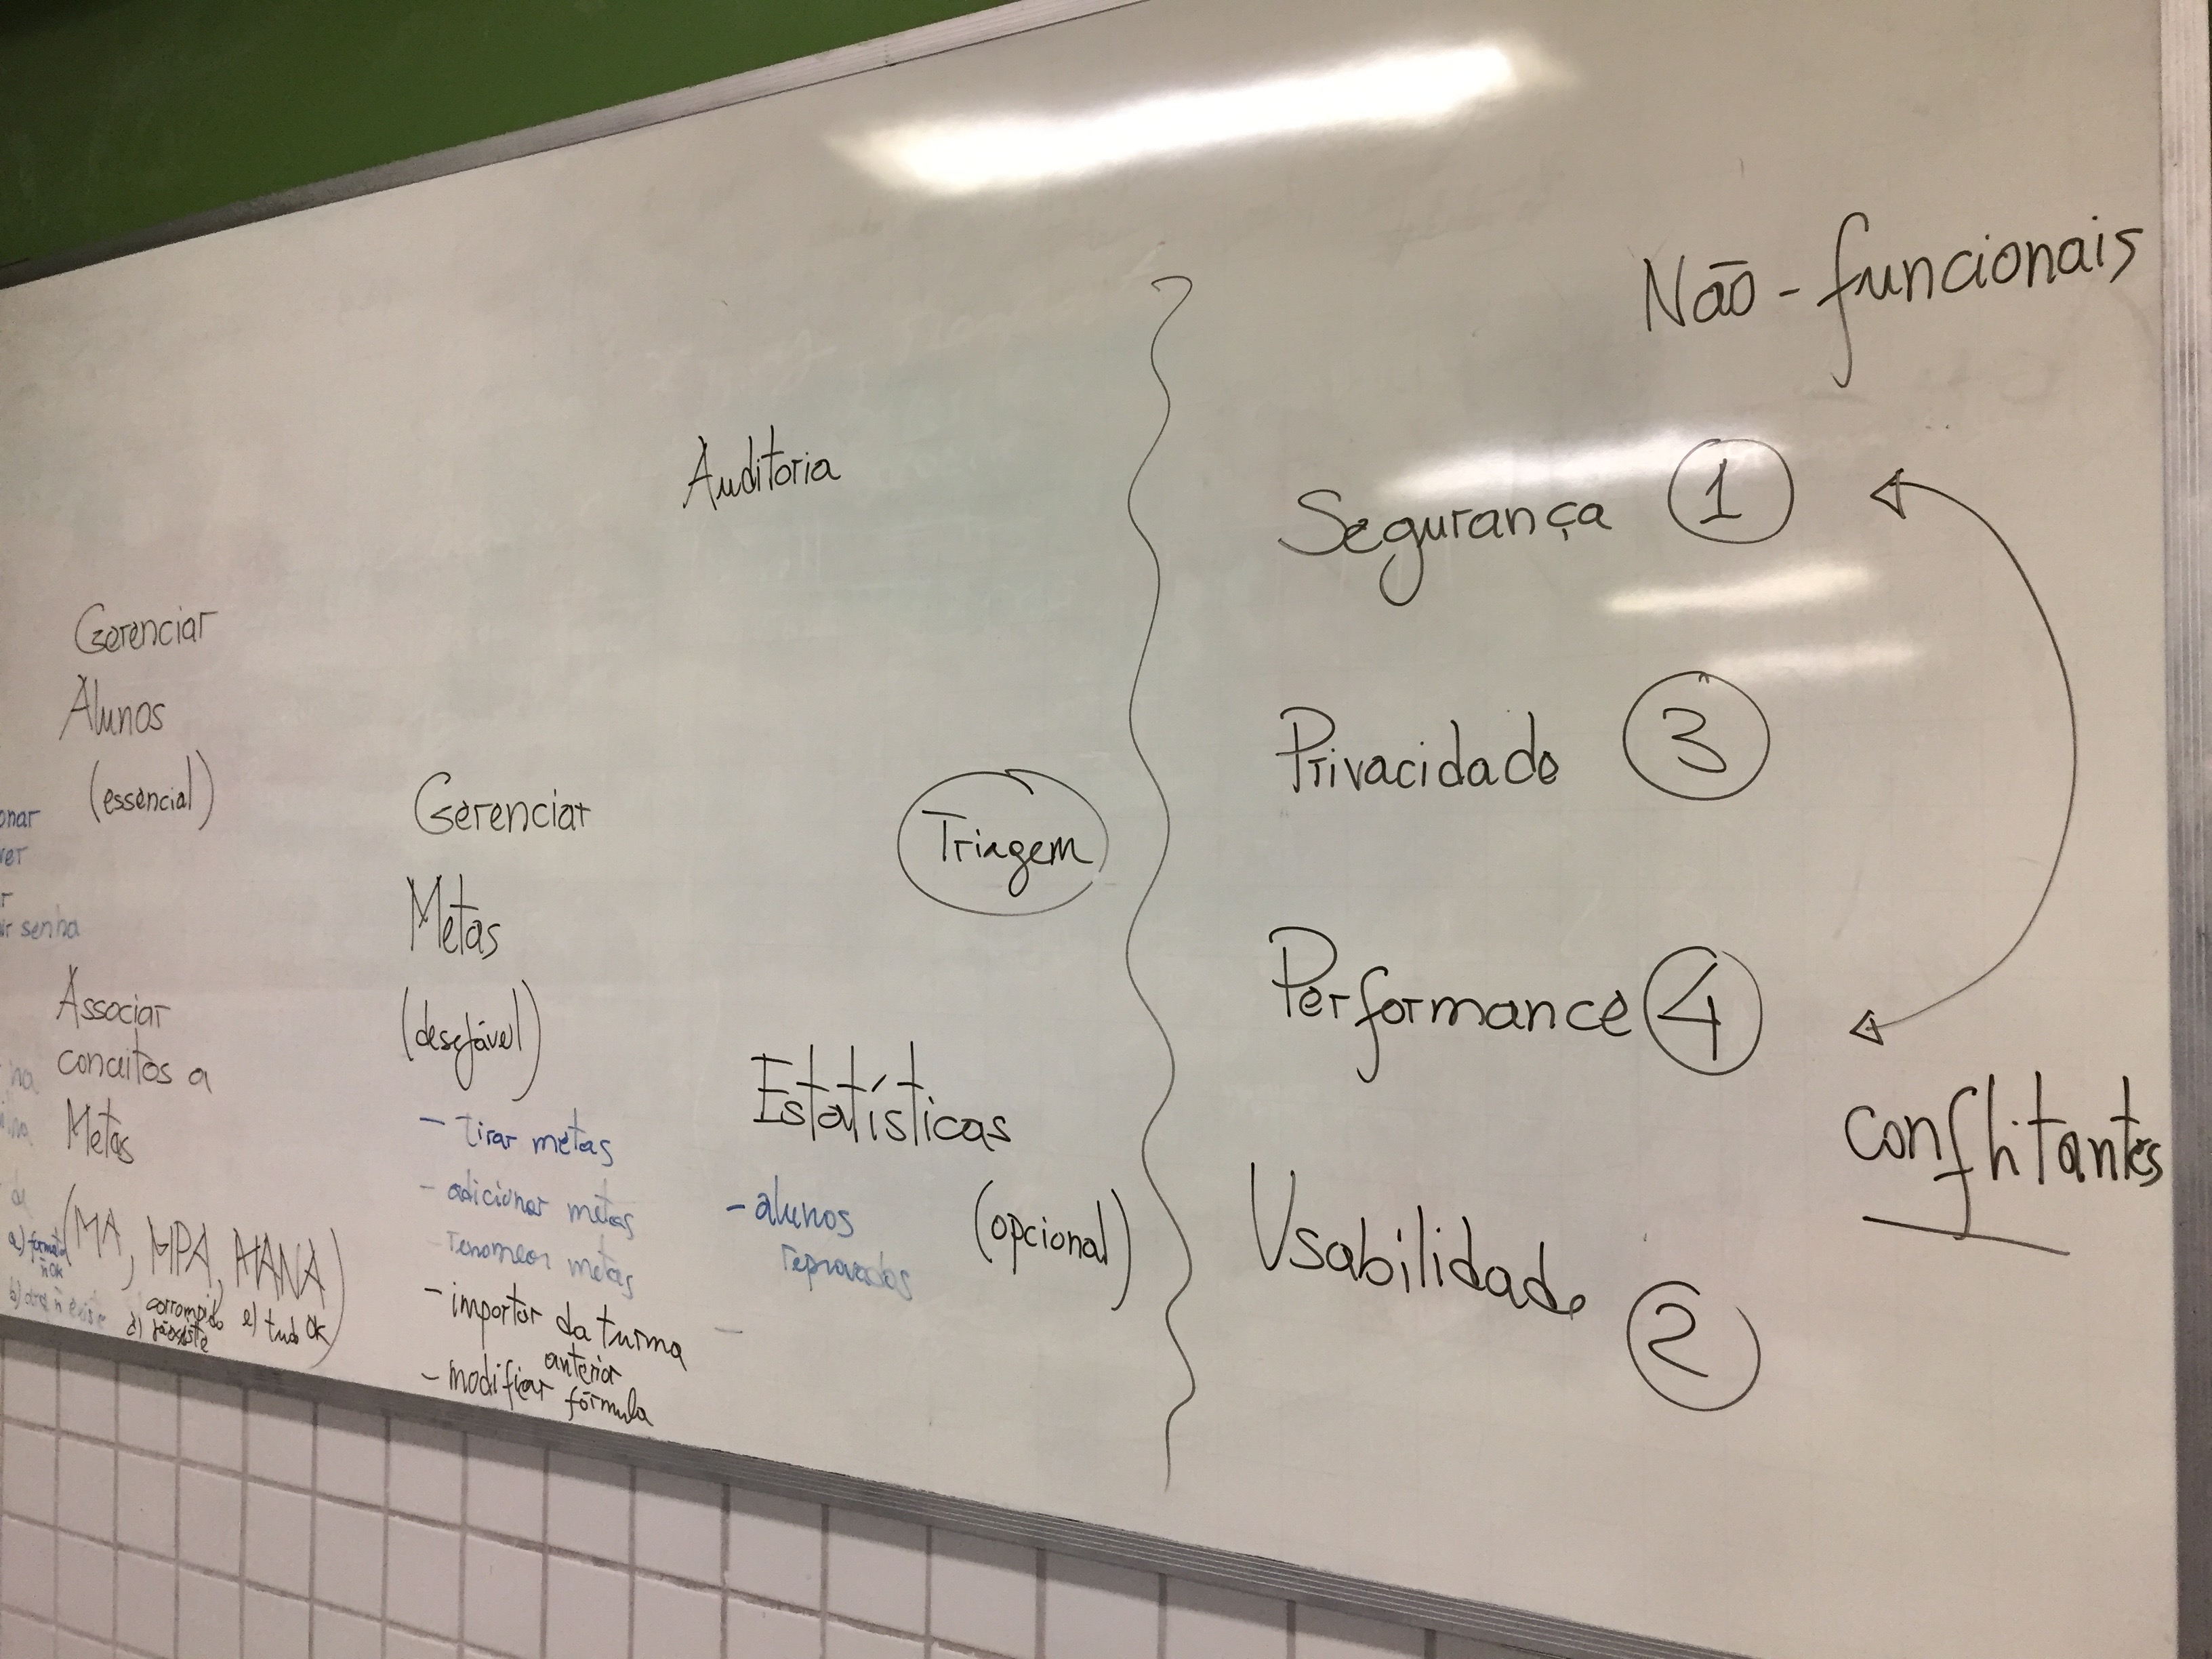 Auditoria
Gerenciar
Alunos
(essencial)
senha
Associar
conceitos a
Metas
(MA, MPA, MANA)
a) formato
ñ ok
corrompido
e) tudo Ok
Gerenciar
Metas
(desejável)
- tirar metas
- adicionar metas
- renomear metas
- importar da turma
anterior
- modificar fórmula
Triagem
Estatísticas
(opcional)
- alunos
reprovados
-
Não-funcionais
Segurança 1
Privacidade 3
Performance 4
Usabilidade 2
conflitantes